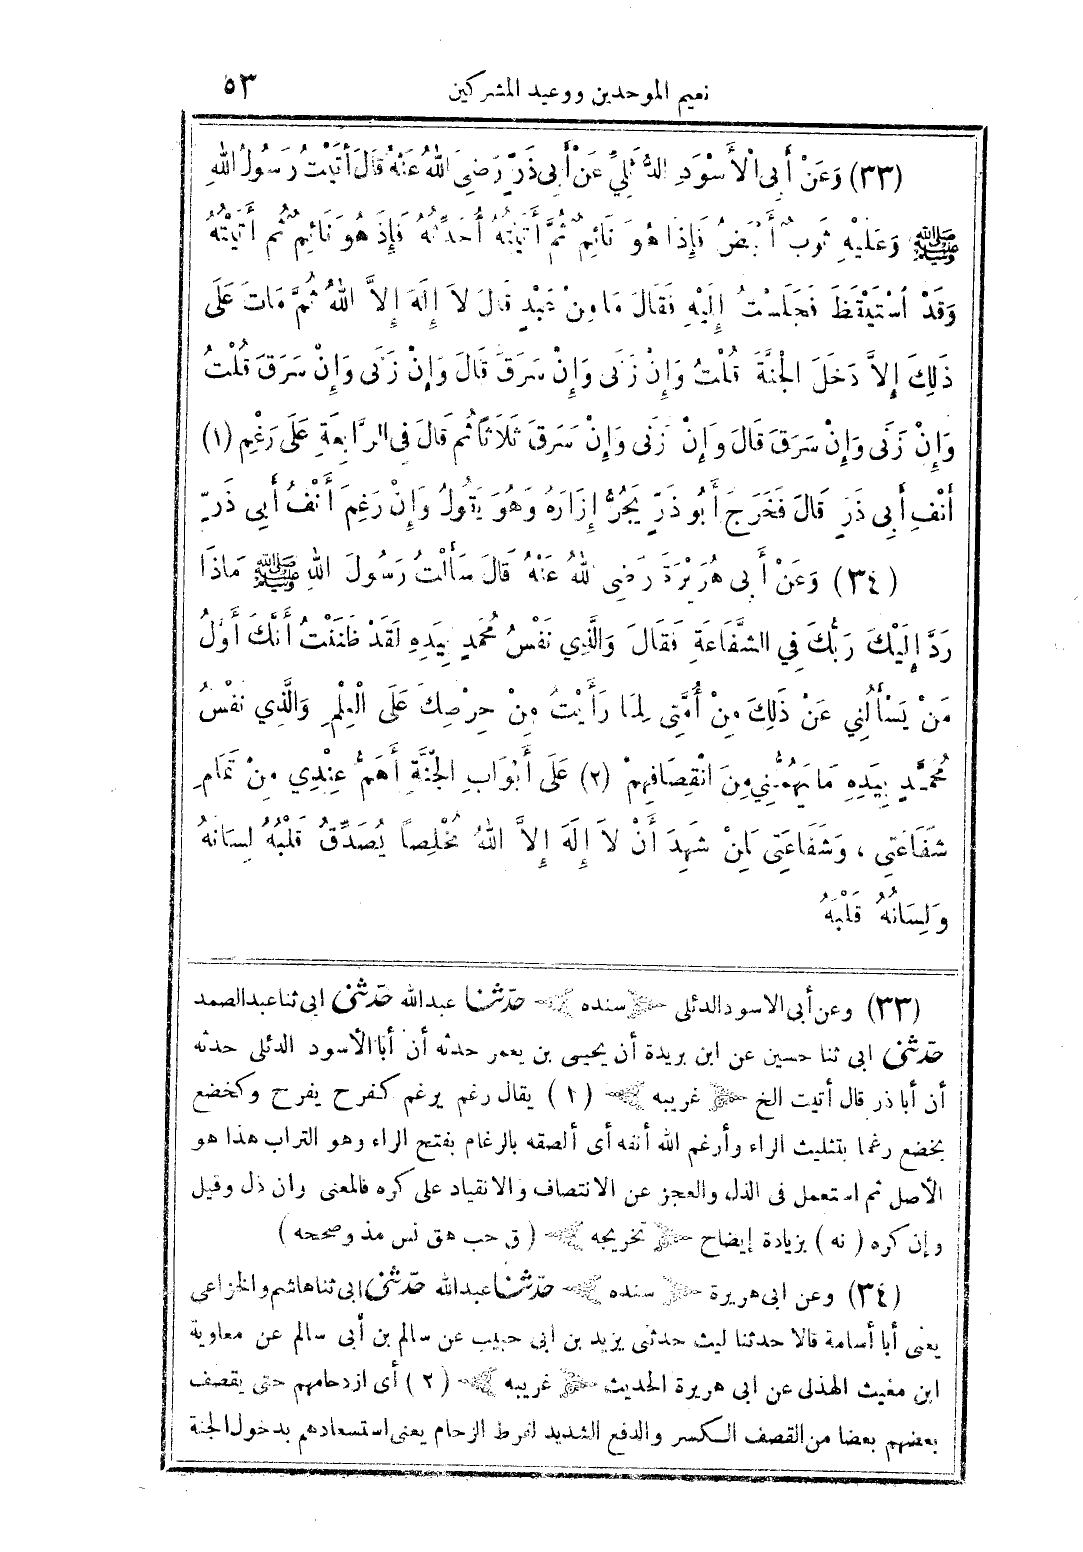 نعيم الموحدين ووعيد المشركين ٥٣
(٣٣) وَعَنْ أَبِي الْأَسْوَدِ الدُّئَلِيِّ عَنْ أَبِي ذَرٍّ رَضِيَ اللهُ عَنْهُ قَالَ أَتَيْتُ رَسُولَ اللهِ
ﷺ وَعَلَيْهِ ثَوبٌ أَبْيَضُ فَإِذَا هُوَ نَائِمٌ ثُمَّ أَتَيْتُهُ أُحَدِّثُهُ فَإِذَ هُوَ نَائِمٌ ثُم أَتَيْتُهُ
وَقَدْ اسْتَيْقَظَ فَجَلَسْتُ إِلَيْهِ فَقَالَ مَا مِنْ عَبْدٍ قَالَ لَا إِلَهَ إِلاَّ اللهُ ثُمَّ مَاتَ عَلَى
ذَلِكَ إِلاَّ دَخَلَ الْجَنَّةَ قُلْتُ وَإِنْ زَنَى وَإِنْ سَرَقَ قَالَ وَإِنْ زَنَى وَإِنْ سَرَقَ قُلْتُ
وَإِنْ زَنَى وَإِنْ سَرَقَ قَالَ وَإِنْ زَنَى وَإِنْ سَرَقَ ثَلَاثًا ثُم قَالَ فِي الرَّابِعَةِ عَلَى رَغْمِ (١)
أَنْفِ أَبِي ذَرٍ قَالَ فَخَرَجَ أَبُو ذَرٍّ يَجُرُّ إِزَارَهُ وَهُوَ يَقُولُ وَإِنْ رَغِمَ أَنْفُ أَبِي ذَرٍّ
(٣٤) وَعَنْ أَبِي هُرَيْرَةَ رَضِيَ اللهُ عَنْهُ قَالَ سَأَلْتُ رَسُولَ اللهِ ﷺ مَاذَا
رَدَّ إِلَيْكَ رَبُّكَ فِي الشَّفَاعَةِ فَقَالَ وَالَّذِي نَفْسُ مُحَمَدٍ بِيَدِهِ لَقَدْ ظَنَنْتُ أَنَّكَ أَوَّلُ
مَنْ يَسْأَلُنِي عَنْ ذَلِكَ مِنْ أُمَّتِي لِمَا رَأَيْتُ مِنْ حِرْصِكَ عَلَى الْعِلْمِ وَالَّذِي نَفْسُ
مُحَمَّدٍ بِيَدِهِ مَا يَهُمُّنِي مِنَ انْقِصَافِهِمْ (٢) عَلَى أَبْوَابِ الْجَنَّةِ أَهَمُّ عِنْدِي مِنْ تَمَامِ
شَفَاعَتِي ، وَشَفَاعَتِي لِمَنْ شَهِدَ أَنْ لاَ إِلَهَ إِلاَّ اللهُ مُخْلِصاً يُصَدِّقُ قَلْبُهُ لِسَانَهُ
وَلِسَانُهُ قَلْبَهُ
(٣٣) وعن أبى الاسود الدئلى ﴿سنده﴾ حدثنا عبد الله حدثنى ابى ثنا عبد الصمد
حدثنى ابى ثنا حسين عن ابن بريدة أن يحيى بن يعمر حدثه أن أبا الأسود الدئلى حدثه
أن أبا ذر قال أتيت الخ ﴿غريبه﴾ (١) يقال رغم يرغم كفرح يفرح وكخضع
يخضع رغما بتثليث الراء وأرغم الله أنفه أى ألصقه بالرغام بفتح الراء وهو التراب هذا هو
الأصل ثم استعمل فى الذل والعجز عن الانتصاف والانقياد على كره فالمعنى وان ذل وقيل
وإن كره (نه) بزيادة إيضاح ﴿تخريجه﴾ (ق حب هق نس مذ وصححه)
(٣٤) وعن ابى هريرة ﴿سنده﴾ حدثنا عبد الله حدثنى ابى ثنا هاشم والخزاعى
يعنى أبا أسامة قالا حدثنا ليث حدثنى يزيد بن ابى حبيب عن سالم بن أبى سالم عن معاوية
ابن مغيث الهذلى عن ابى هريرة الحديث ﴿غريبه﴾ (٢) أى ازدحامهم حتى يقصف
بعضهم بعضا من القصف الكسر والدفع الشديد لفرط الزحام يعنى استسعادهم بدخول الجنة